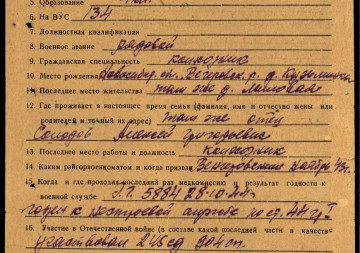 5. Образование
6. На ВУС 134
7. Должностная квалификация
8. Военное звание рядовой
9. Гражданская специальность колхозник
10. Место рождения Новосибир. обл. Венгеровск. р. д.
11. Последнее место жительства там же д.
12. Где проживает в настоящее время семья (фамилия, имя и отчество жены или
родителей и точный их адрес) там же отец
Алексей Григорьевич
13. Последнее место работы и должность колхозник
14. Каким райгорвоенкоматом и когда призван Венгеровским
15. Когда и где проходил последний раз медкомиссию и результат годности к
военной службе 28.10.44
годен к строевой
16. Участие в Отечественной войне (в составе какой последней части и в качестве
участвовал 248 сд